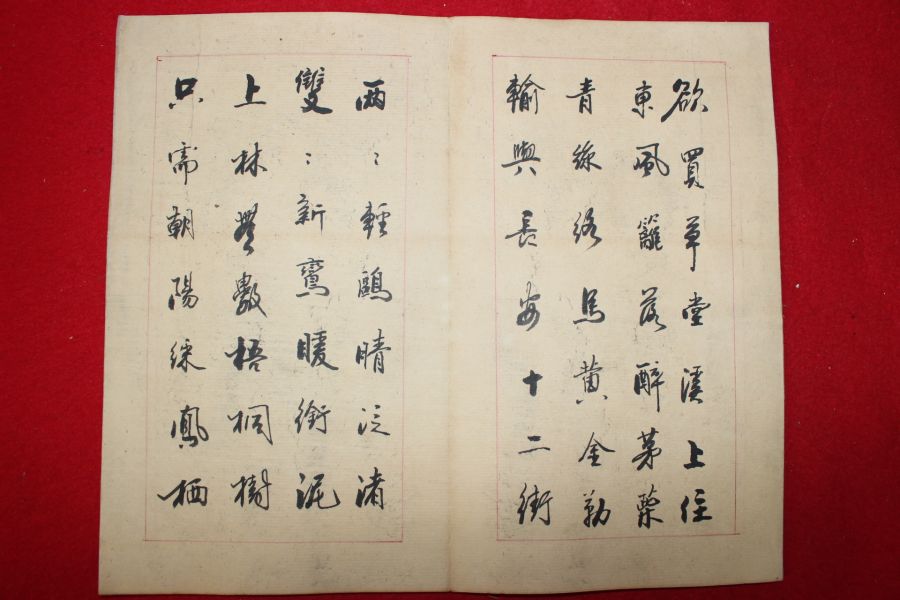 欲買草堂溪上住
東風籬落醉茅柴
青絲絡馬黄金勒
輸與長安十二街
兩〻輕鷗晴泛渚
雙〻新鷰暖銜泥
上林無數梧桐樹
只需朝陽綵鳳栖